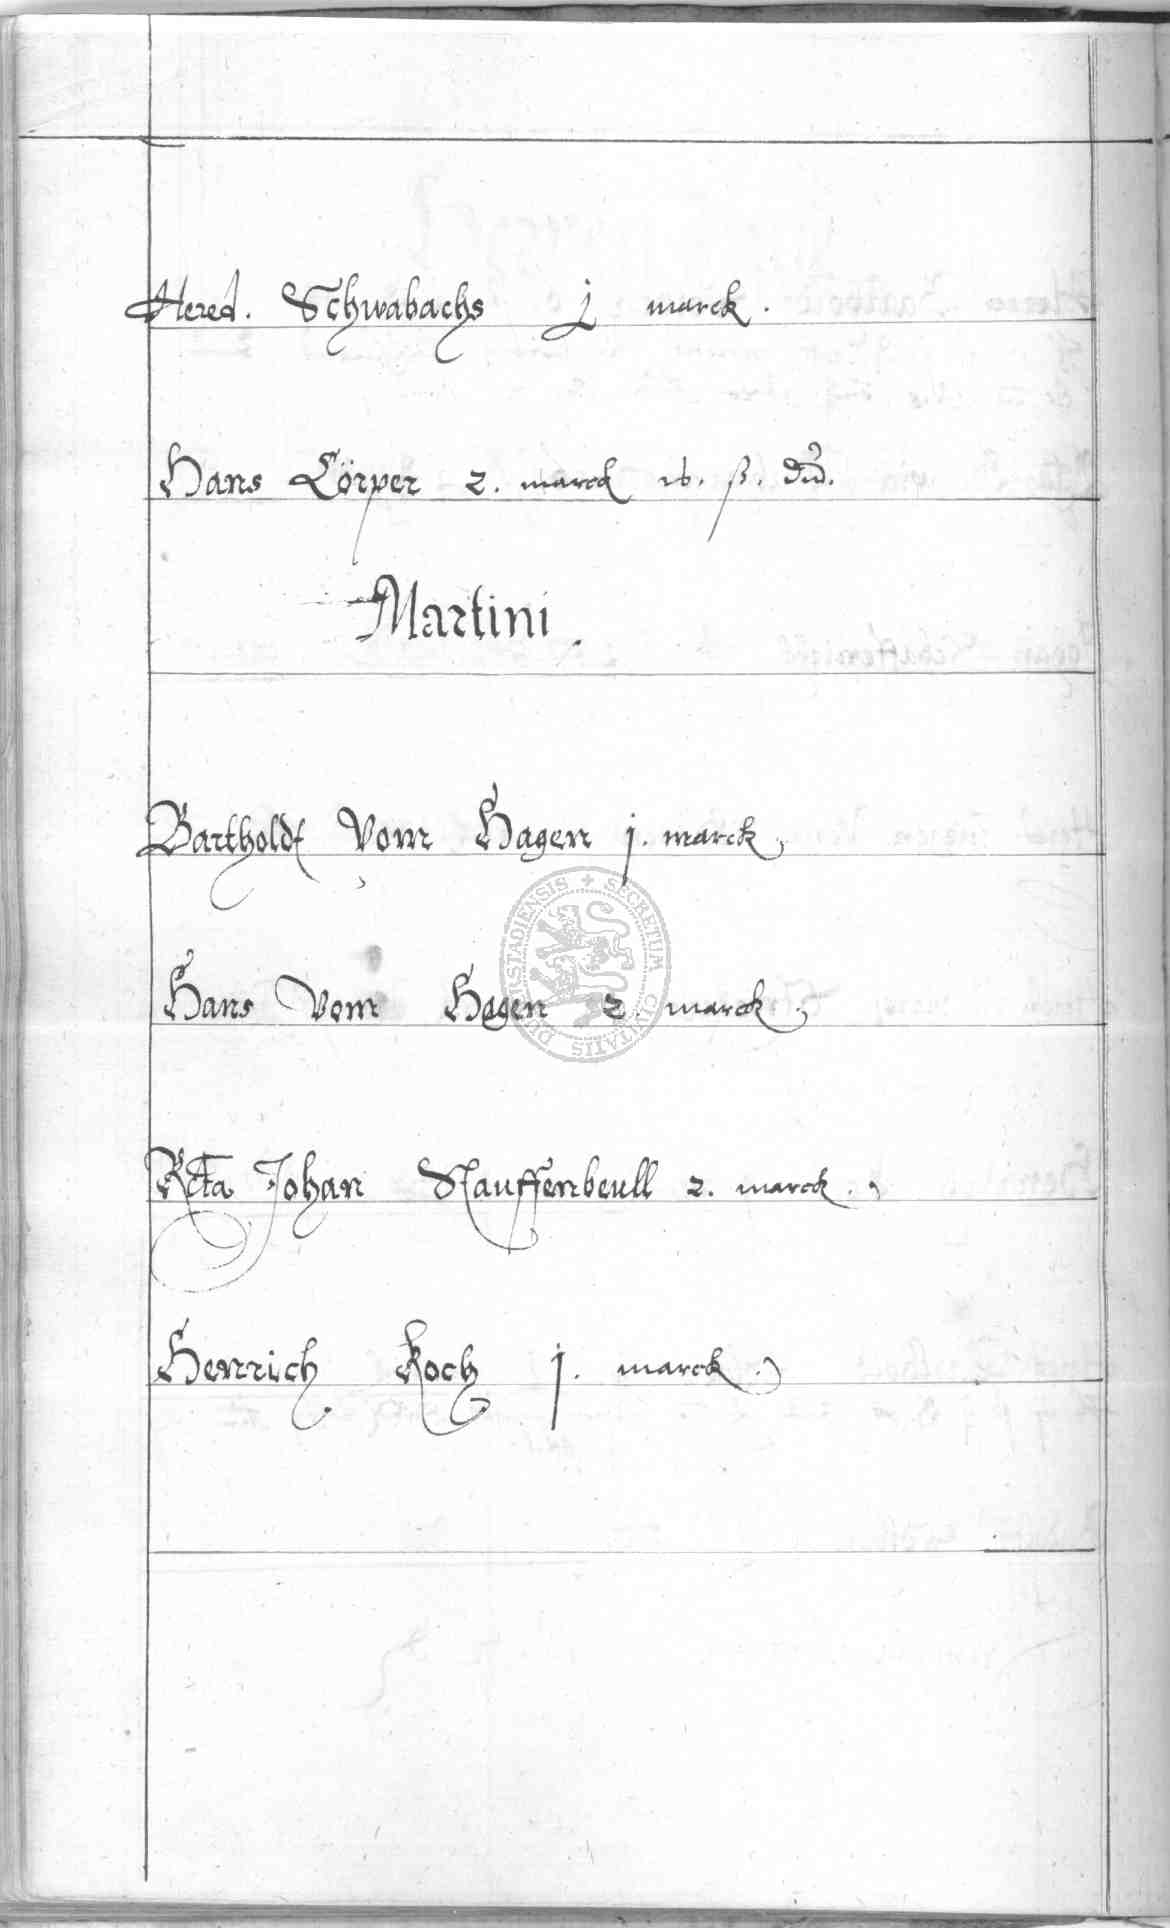 Hered. Schwabachs j marck.
Hans Cörper 2. marck 16. ß.
Martini
Bartholdt Vom Hagen j. marck.
Hans Vom Hagen 2. marck.
Johan Stauffenbeull 2. marck.
Henrich Koch j. marck.
SECRETUM CIVITATIS DUDERSTADIENSIS